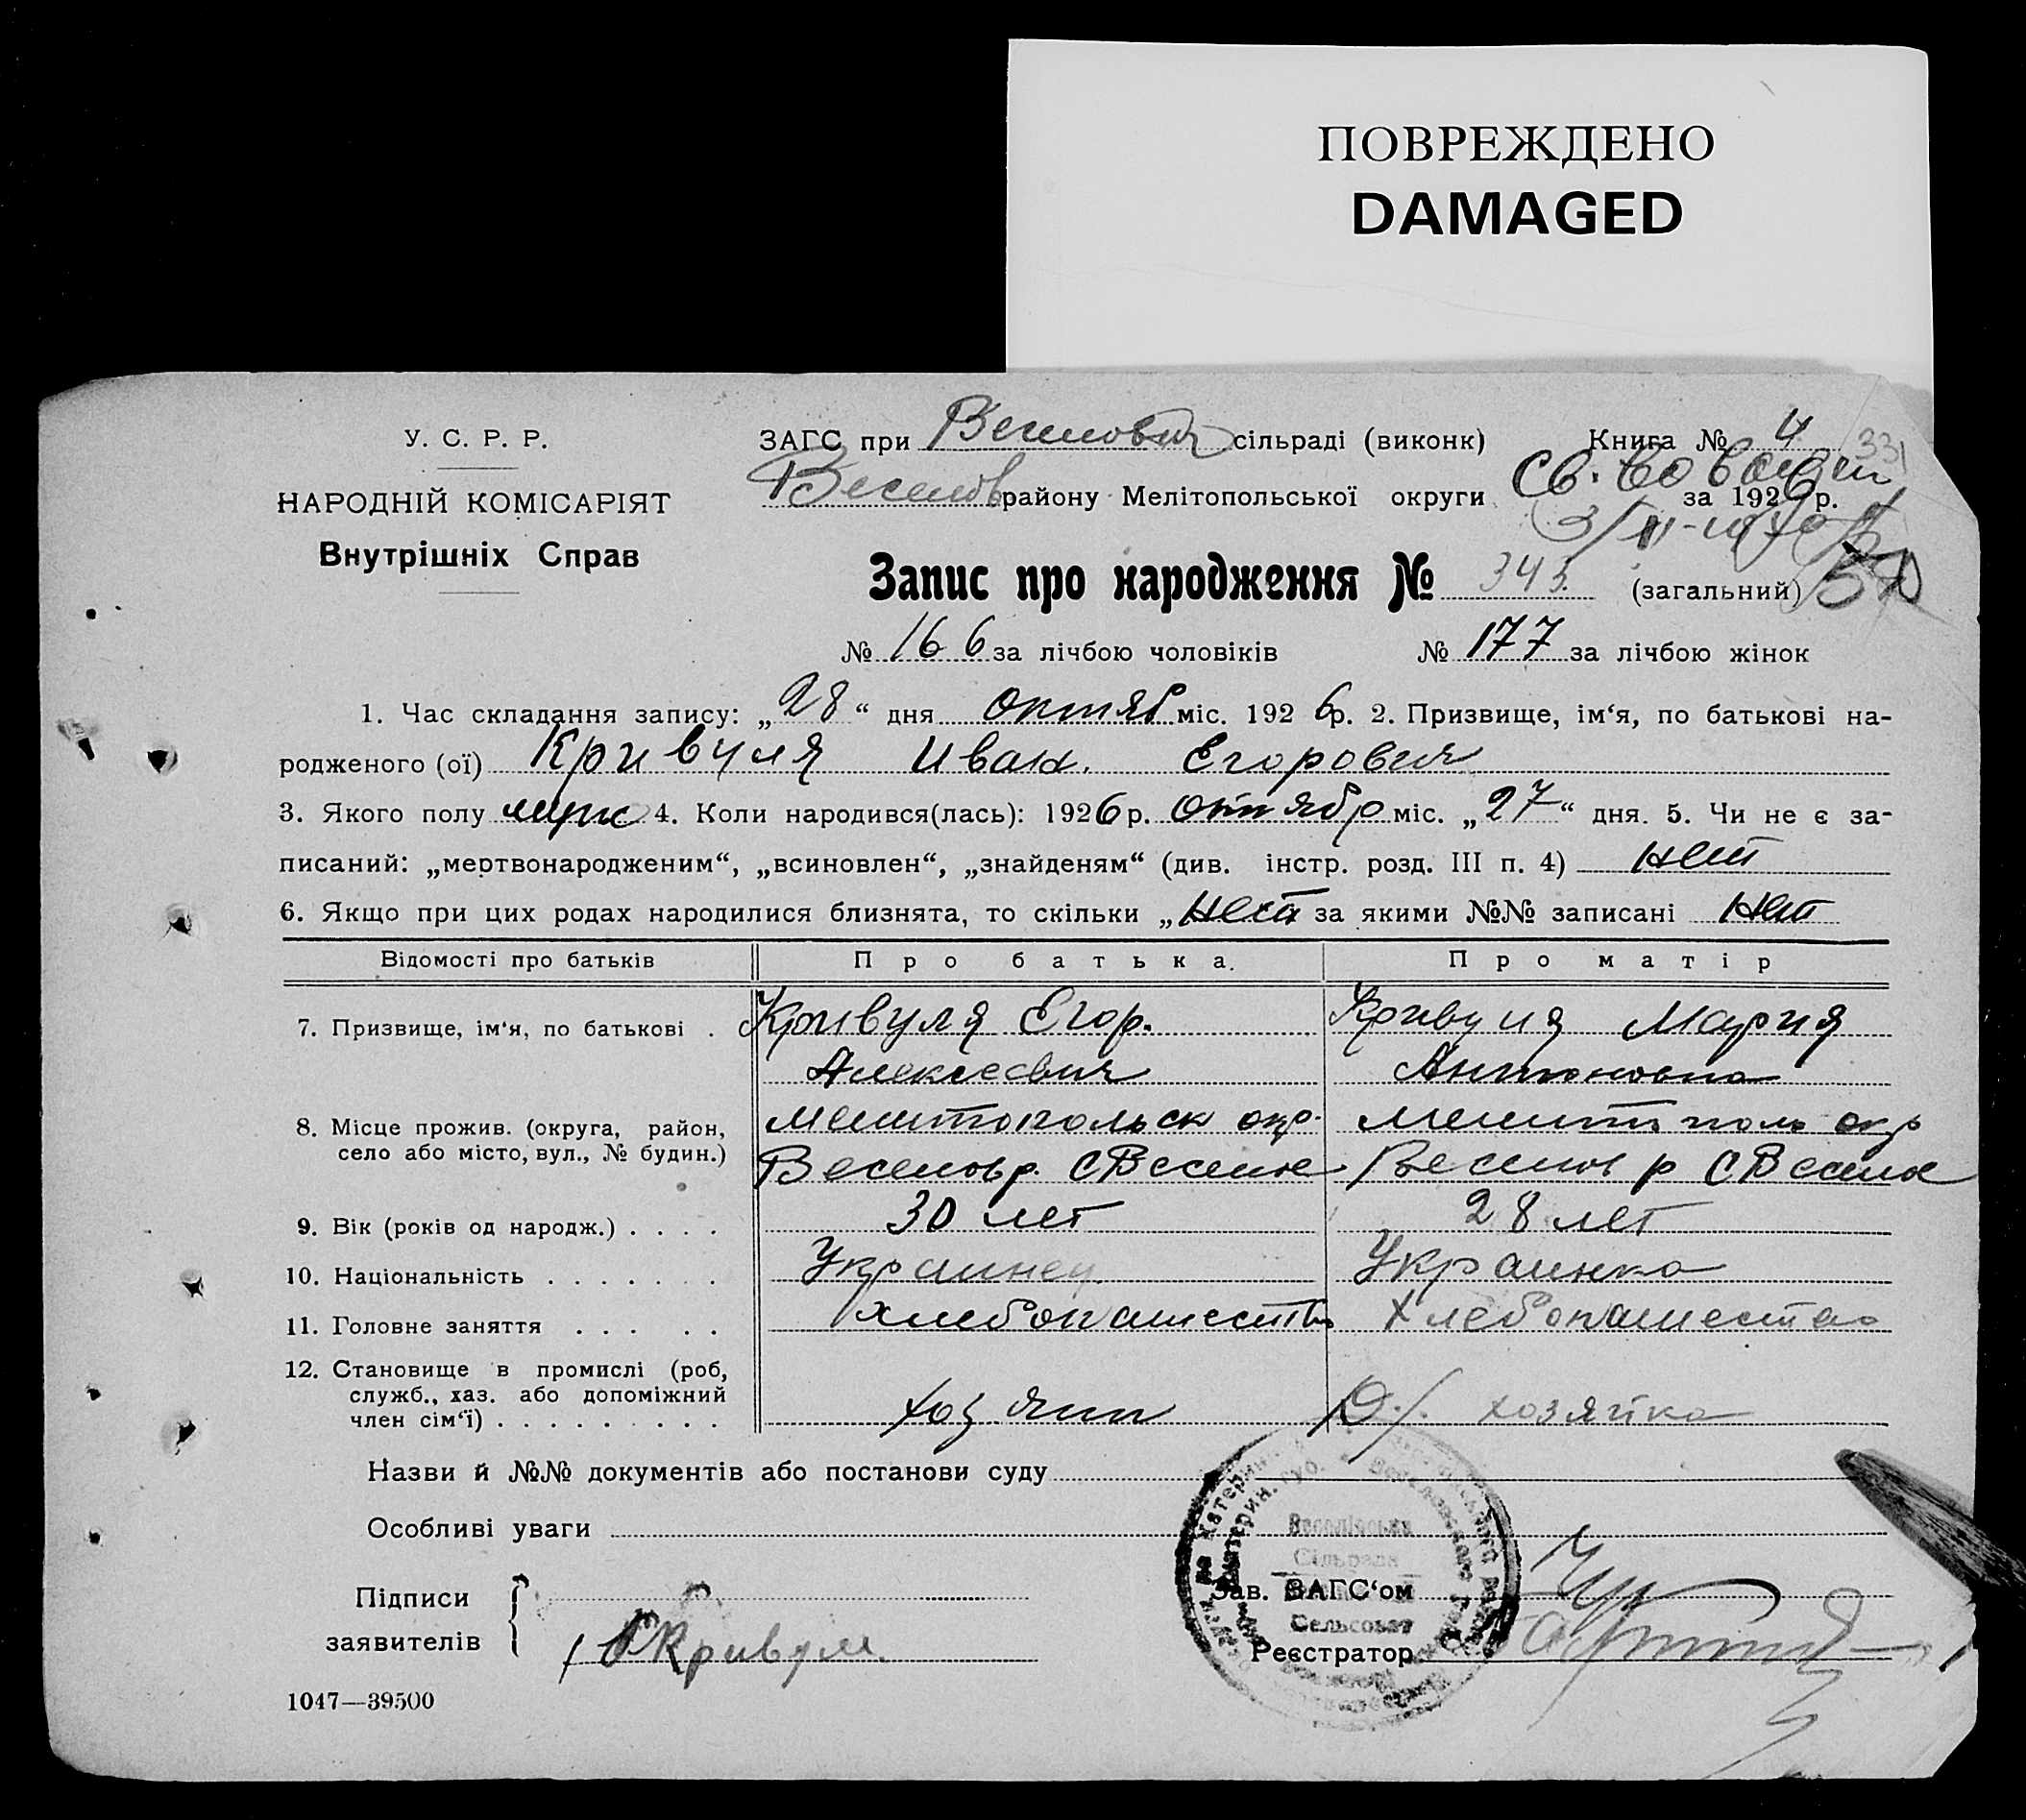 ПОВРЕЖДЕНО
DAMAGED
У. С. Р. Р.
НАРОДНІЙ КОМІСАРІЯТ
Внутрішніх Справ
ЗАГС при сільраді (виконк) Книга № 4
331
Веселов району Мелітопольської округи за 1926 р.
Запис про народження № 343. (загальний)
№ 166 за лічбою чоловіків № 177 за лічбою жінок
1. Час складання запису: „28“ дня октяб міс. 1926 р. 2. Призвище, ім‘я, по батькові на-
родженого (ої) Кривуля Иван. Егорович
3. Якого полу муж 4. Коли народився(лась): 1926 р. октябр міс. „27“ дня. 5. Чи не є за-
писаний: „мертвонародженим“, „всиновлен“, „знайденям“ (див. інстр. розд. III п. 4) нет
6. Якщо при цих родах народилися близнята, то скільки „нет за якими №№ записані нет
Відомості про батьків Про батька. Про матір
7. Призвище, ім‘я, по батькові . Кривуля Егор. Кривуля Мария
Алексеевич Антоновна
8. Місце прожив. (округа, район, Мелитопольск окр. Мелитополь окр
село або місто, вул., № будин.) Веселов р. с Веселое Веселов р с Веселое
9. Вік (років од народж.) . . . . 30 лет 28 лет
10. Національність . . . . . . . Украинец Украинка
11. Головне заняття . . . . . Хлебопашество Хлебопашество
12. Становище в промислі (роб,
служб., хаз. або допоміжний
член сім‘ї) . . . . . . . . . хозяин Д/. хозяйка
Назви й №№ документів або постанови суду
Особливі уваги
Веселівська
Сільрада
Підписи
Зав. ЗАГС‘ом
Сельсовет
заявителів Кривуля
Реєстратор
1047—39500